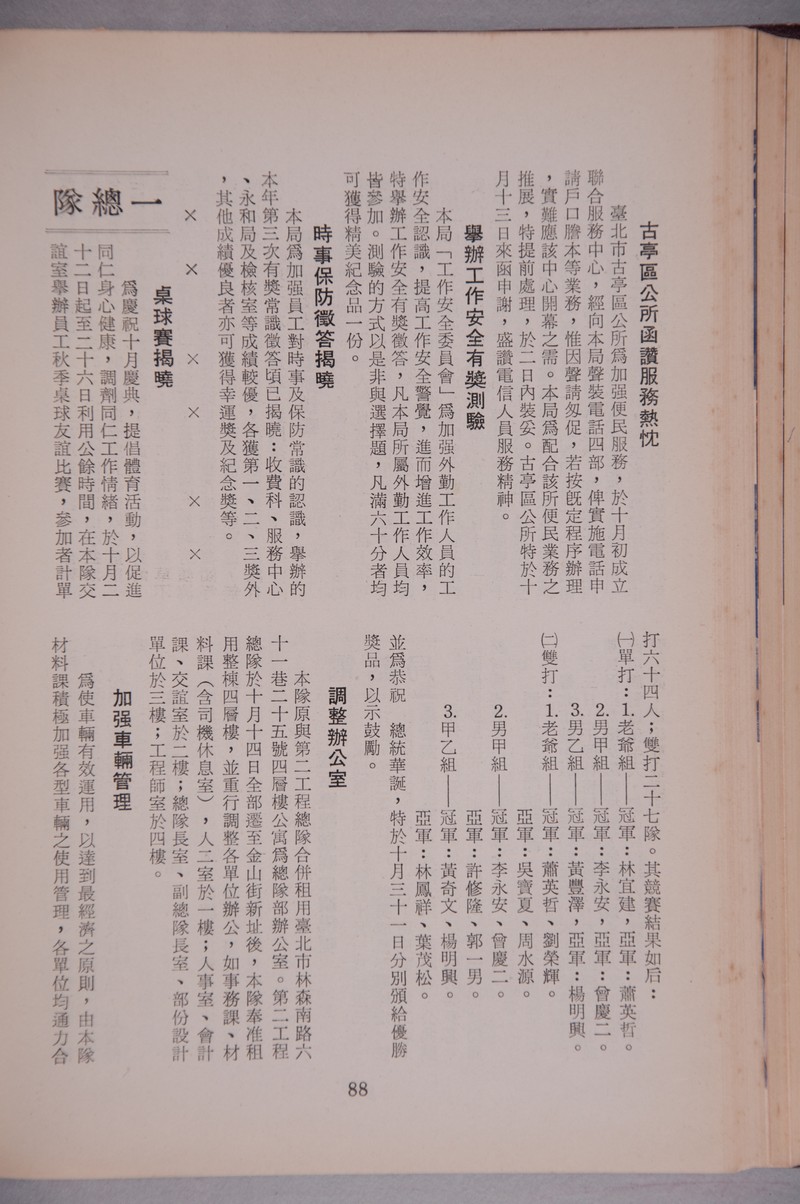 古亭區公所函讚服務熱忱
臺北市古亭區公所爲加强便民服務，於十月初成立
聯合服務中心，經向本局聲裝電話四部，俾實施電話申
請戶口謄本等業務，惟因聲請匆促，若按旣定程序辦理
，實難應該中心開幕之需。本局爲配合該所便民業務之
推展，特提前處理，於二日內裝妥。古亭區公所特於十
月十三日來函申謝，盛讚電信人員服務精神。
舉辦工作安全有獎測驗
本局「工作安全委員會」爲加强外勤工作人員的工
作安全認識，提高工作安全警覺，進而增進工作效率，
特舉辦工作安全有獎徵答，凡本局所屬外勤工作人員均
皆參加。測驗的方式以是非與選擇題，凡滿六十分者均
可獲得精美紀念品一份。
時事保防徵答揭曉
本局爲加强員工對時事及保防常識的認識，舉辦的
本年第三次有獎常識徵答頃已揭曉：收費科、服務中心
、永和局及檢核室等成績較優，各獲第一、二、三獎外
，其他成績優良者亦可獲得幸運獎及紀念獎等。
× × × × × ×
一總隊
桌球賽揭曉
爲慶祝十月慶典，提倡體育活動，以促進
同仁身心健康，調劑同仁工作情緒，於十月二
十二日起至二十六日利用公餘時間，在本隊交
誼室舉辦員工秋季桌球友誼比賽，參加者計單
打六十四人；雙打二十七隊。其競賽結果如后：
㈠單打：1.老爺組——冠軍：林宜建，亞軍：蕭英哲。
2.男甲組——冠軍：李永安，亞軍：曾慶二。
3.男乙組——冠軍：黃豐澤，亞軍：楊明興。
㈡雙打：1.老爺組——冠軍：蕭英哲、劉榮輝。
亞軍：吳寶夏、周水源。
2.男甲組——冠軍：李永安、曾慶二。
亞軍：許修隆、郭一男。
3.甲乙組——冠軍：黃奇文、楊明興。
亞軍：林鳳祥、葉茂松。
並爲恭祝　總統華誕，特於十月三十一日分別頒給優勝
獎品，以示鼓勵。
調整辦公室
本隊原與第二工程總隊合併租用臺北市林森南路六
十一巷二十五號四層樓公寓爲總隊部辦公室。第二工程
總隊於十月十四日全部遷至金山街新址後，本隊奉准租
用整棟四層樓，並重行調整各單位辦公，如事務課、材
料課（含司機休息室），人二室於一樓；人事室、會計
課、交誼室於二樓；總隊長室、副總隊長室、部份設計
單位於三樓；工程師室於四樓。
加强車輛管理
爲使車輛有效運用，以達到最經濟之原則，由本隊
材料課積極加强各型車輛之使用管理，各單位均通力合
88